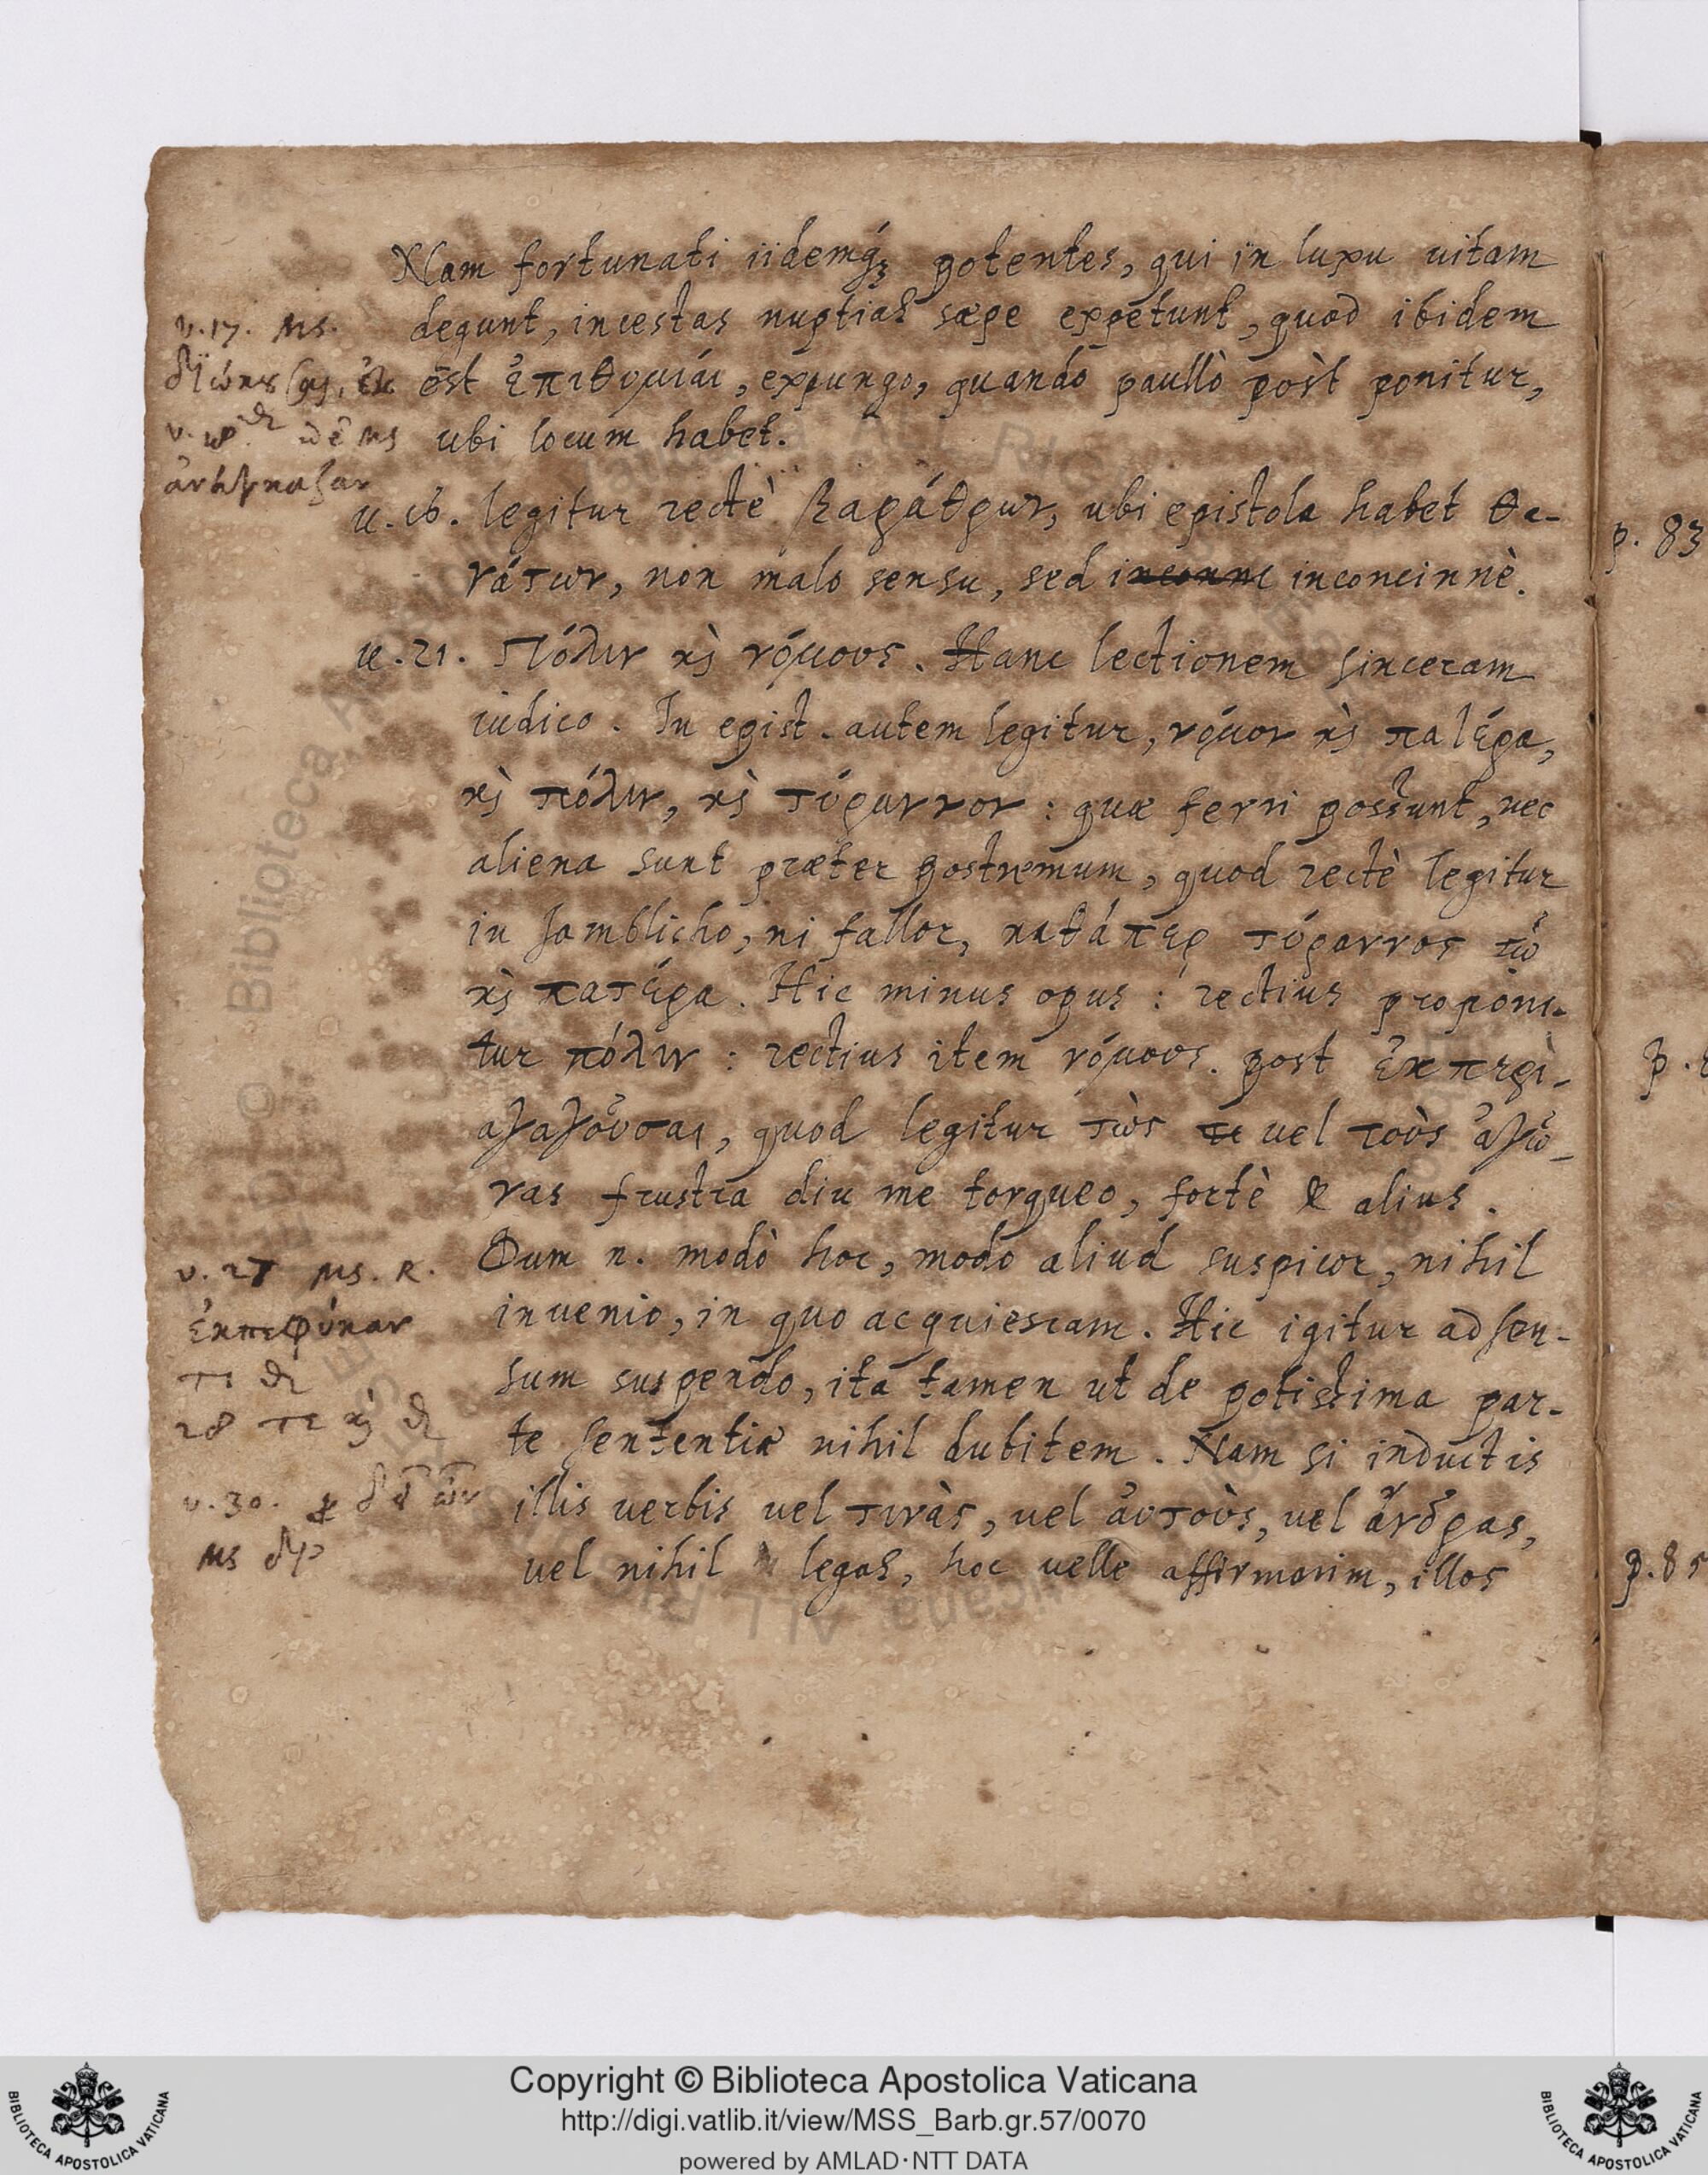 Nam fortunati iidemq́ꝫ potentes, qui in luxu uitam
degunt, incestas nuptias sæpe expetunt, quod ibidem
est ἐπιθυμίαι, expungo, quando paullò pòst ponitur,
ubi locum habet.
v.17. Ms.
idē Ms
u.16. legitur rectè βαράθρων, ubi epistola habet θα-
νάτων, non malo sensu, sed inconnc inconcinnè.
u.21. Πόλιν κὶ νόμους. Hanc lectionem sinceram
iudico. In epist. autem legitur, νόμον κὶ πατέρα,
κὶ πόλιν, κὶ τύραννον: quæ ferri possunt, nec
aliena sunt præter postremum, quod rectè legitur
in Jamblicho, ni fallor, καθάπερ τύραννος
κὶ πατέρα. Hic minus opus: rectius proponi-
tur πόλιν: rectius item νόμους. post ἐκπερι-
αγαγοῦσαι, quod legitur τὼς τε uel τοὺς ἀγῶ-
νας frustra diu me torqueo, fortè & alius.
Dum n. modò hoc, modo aliud suspicor, nihil
inuenio, in quo acquiescam. Hic igitur adsen-
sum suspendo, ita tamen ut de potissima par-
te sententiæ nihil dubitem. Nam si inductis
illis uerbis uel τινὰς, uel ἀυτοὺς, uel ἄνδρας,
uel nihil legas, hoc uelle affirmarim, illos
v.27 Ms. R.
ἐκπεφύκαν
τι δὲ
28 τε κὶ δὲ
v.30.
Ms
p. 83
p.
p.85
Copyright © Biblioteca Apostolica Vaticana
http://digi.vatlib.it/view/MSS_Barb.gr.57/0070
powered by AMLAD·NTT DATA
BIBLIOTECA APOSTOLICA VATICANA
BIBLIOTECA APOSTOLICA VATICANA